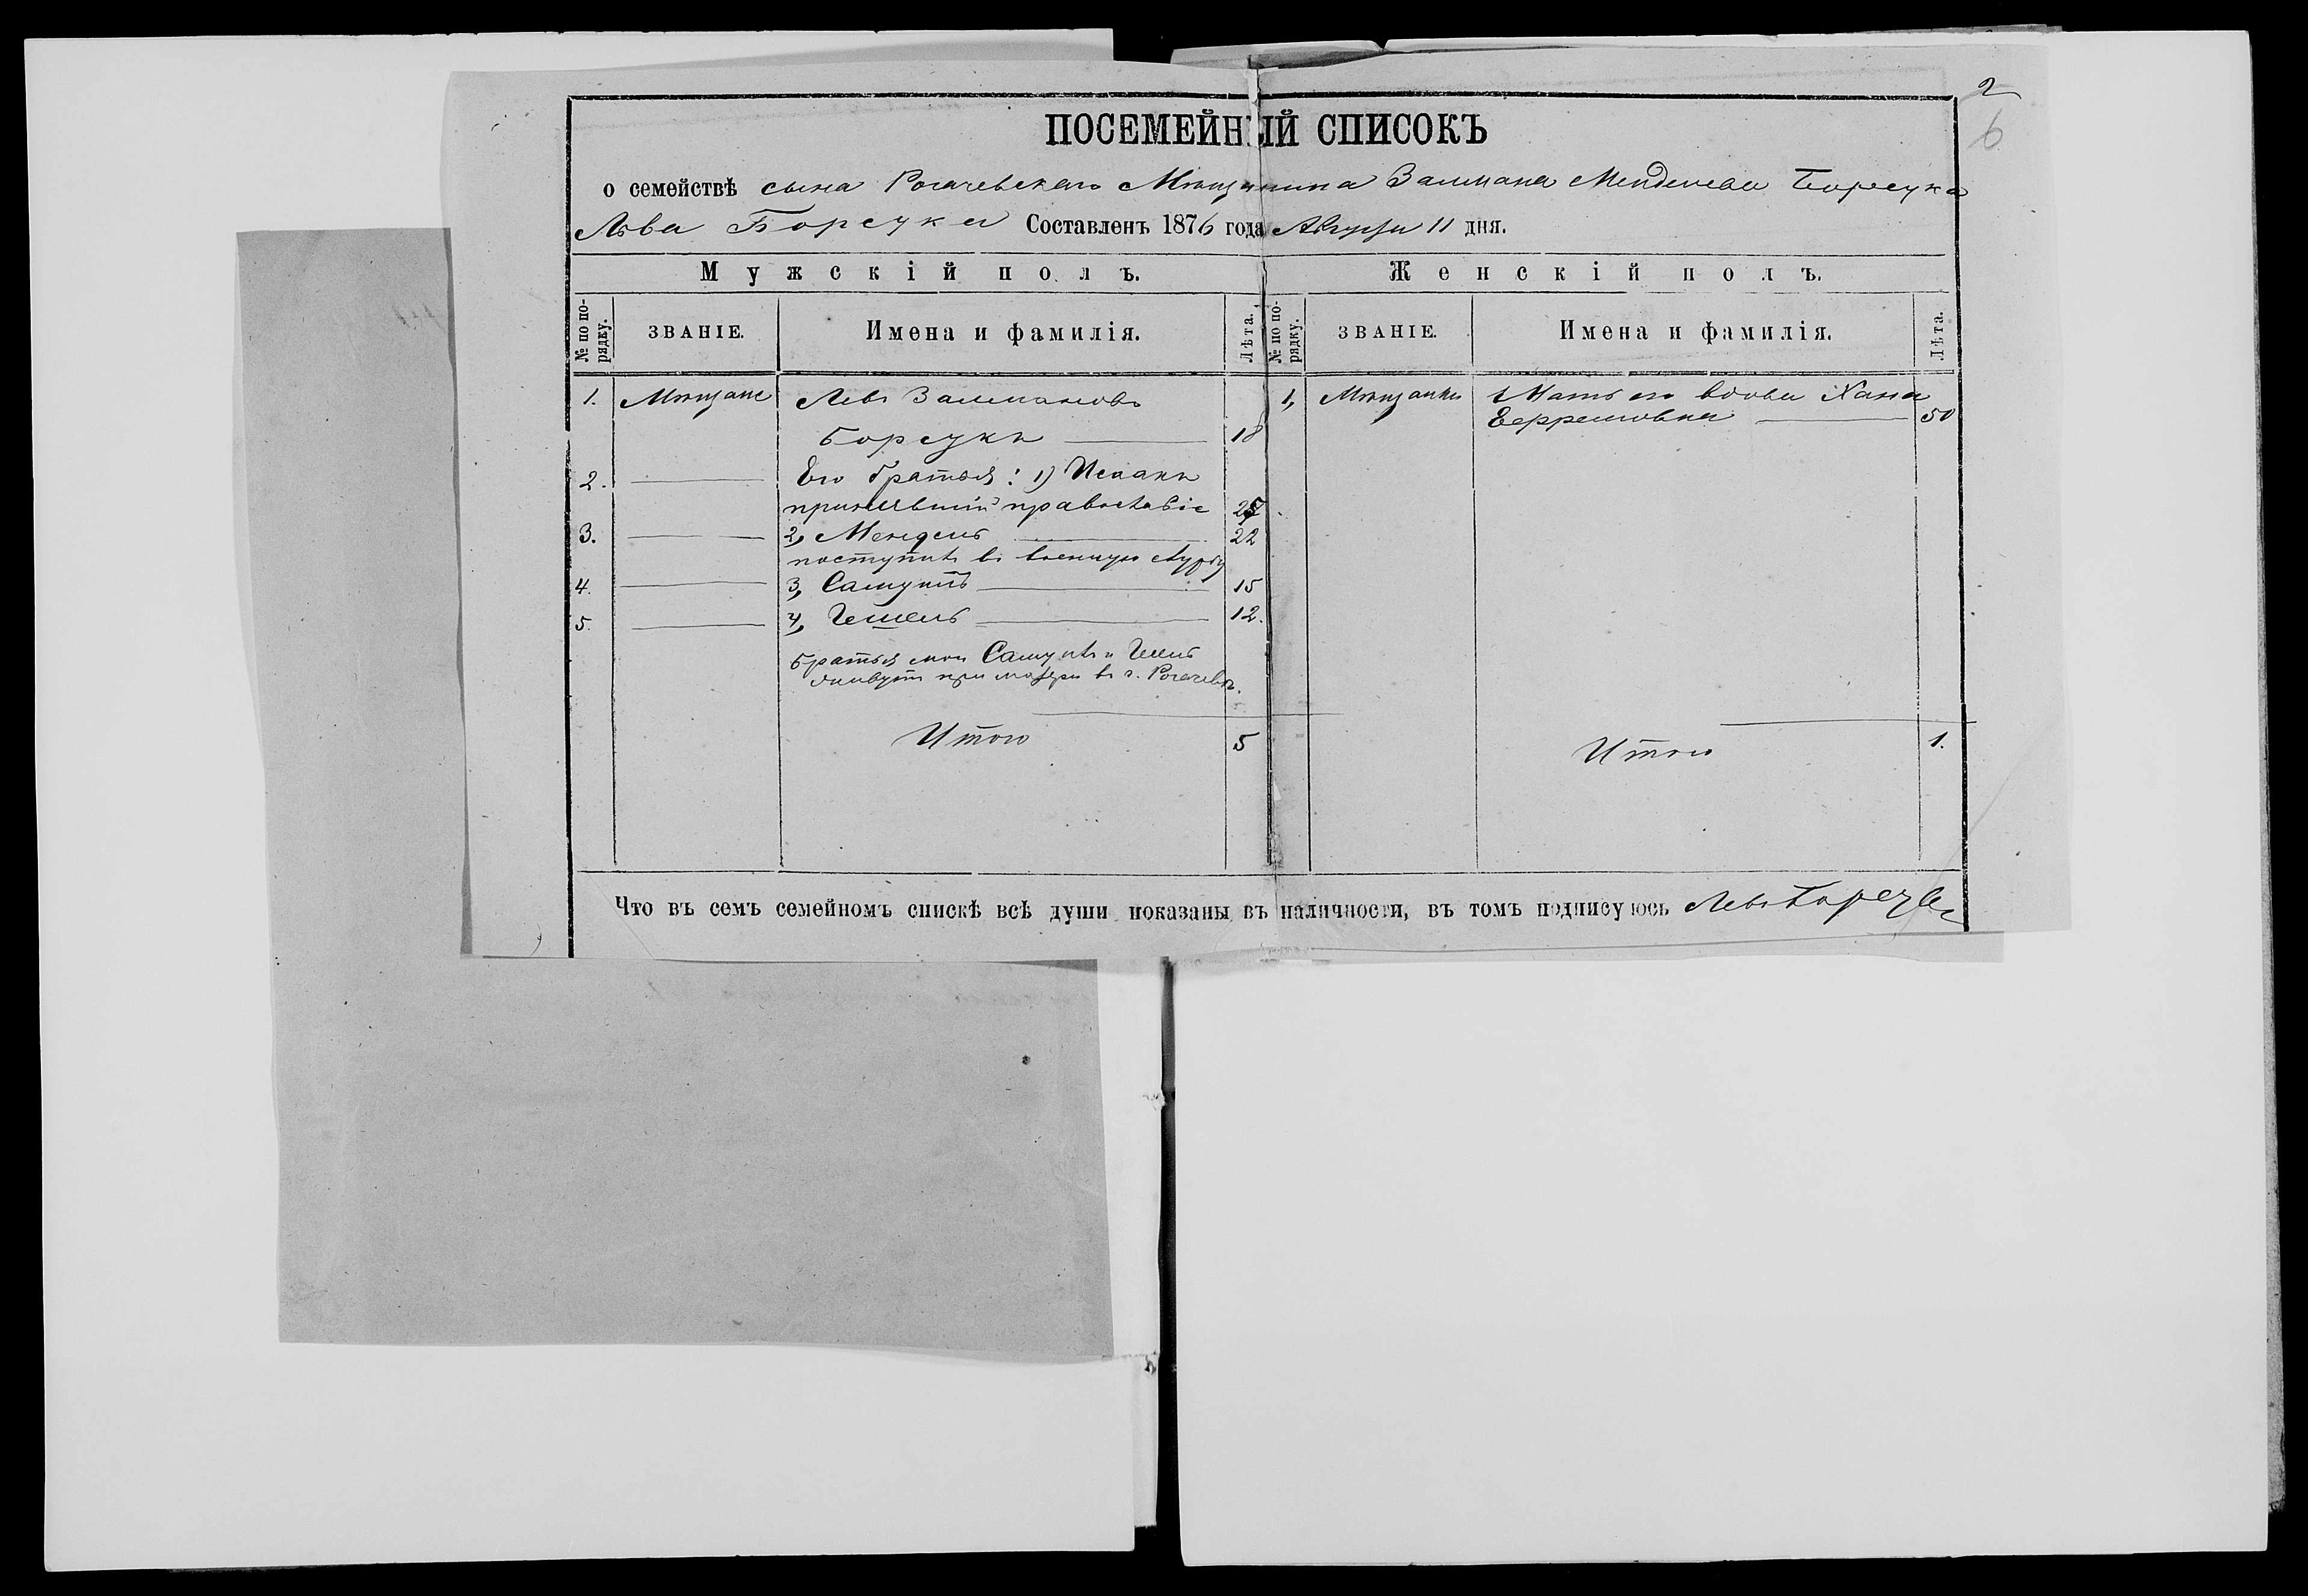 2
6
ПОСЕМЕЙНЫЙ СПИСОКЪ
о семействѣ сына Рогачевскаго Мѣщанина Залмана Менделева Борсука
Льва Борсука Составленъ 1876 года Августа 11 дня.
Мужскій полъ. Женскій полъ.
№ по порядку. ЗВАНІЕ. Имена и фамилія. Лѣта. № по порядку. ЗВАНІЕ. Имена и фамилія. Лѣта.
1. Мѣщане Левъ Залмановъ 1, Мѣщанка Мать его вдова Хана
Борсукъ 18 Еффремовна 50
2. Его братья: 1) Исаакъ
принявшій православіе
3. 2, Мендель 22
поступилъ въ военную службу
4. 3, Самуилъ 15
5. 4, Гешель 12.
Братья мои Самуилъ и Гешель
живутъ при матери въ г. Рогачевѣ.
Итого 5 Итого 1.
Что въ семъ семейномъ спискѣ всѣ души показаны въ наличности, въ томъ подписуюсь Левъ Борсукъ